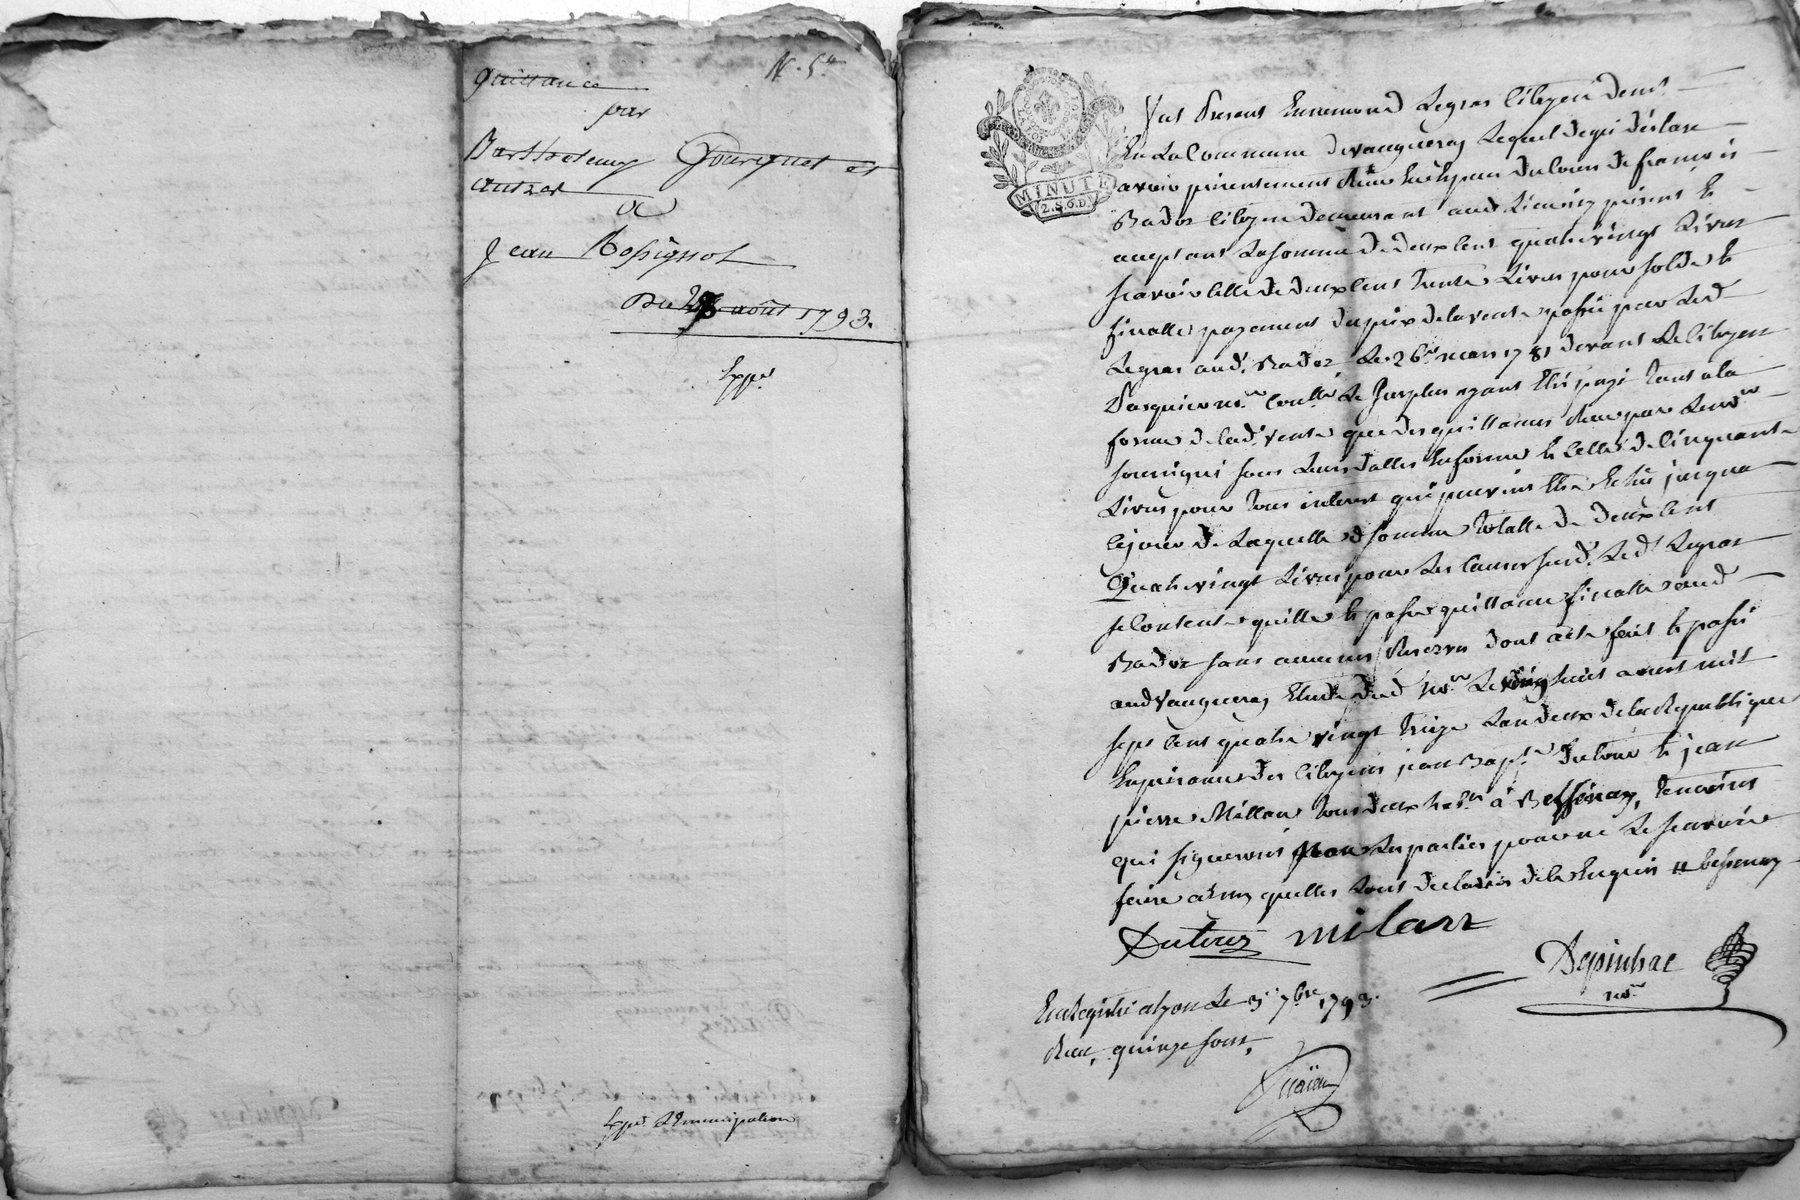 N. 5e
Quittance
par
Barthelemy Gourgnet et
autres
a
Jean Rossignol
Du 28 août 1793.
Exp.e
Exp.e d'Emancipation
MINUTE
2.S.6.D.
fut Present Ennemond Legras Citoyen demt
En La Commune de vaugneray Lequel de gré déclare
avoir presentement Reçu En Especes du Cours de françois
Bador Citoyen demeurant aud. Lieu icy present Et
acceptant La somme de deux Cent quatre vingt Livres
scavoir Celle de deux Cent trente Livres pour solde Et
finalle payement du prix de la vente passée par Led.
Legras aud. Bador Le 26 mars 1781 devant Le Citoyen
Pasquier Le surplus ayant Eté payé tant a la
forme de lad. vente que des quittances Reçues par Le nore
soussigné sous Leurs dattes En forme Et Celle de Cinquante
Livres pour tous interest qui peuvent Etre Echus jusqua
Ce jour de Laquelle d. somme totalle de deux Cent
Quatre vingt Livres pour Les Causes susd. Led. Legras
se Contente quitte Et passe quittance finalle aud.
Bador sans aucunes Reserves dont acte fait Et passé
aud Vaugneray Etude dud. nore Le vingt huit aoust mil
sept Cent quatre vingt treize Lan deux de la Republique
En presence des Citoyens jean Bapt.e Duterie Et jean
pierre Millan tous deux habts à Bessenay, temoins
qui signeront non Les parties pour ne Le scavoir
faire ainsy quelles L'ont declaré de ce Enquis # bessenay
Milan
Depinhac
nore
Enregistré a Lyon Le 3e 7bre 1793.
Reçu, quinze sous,